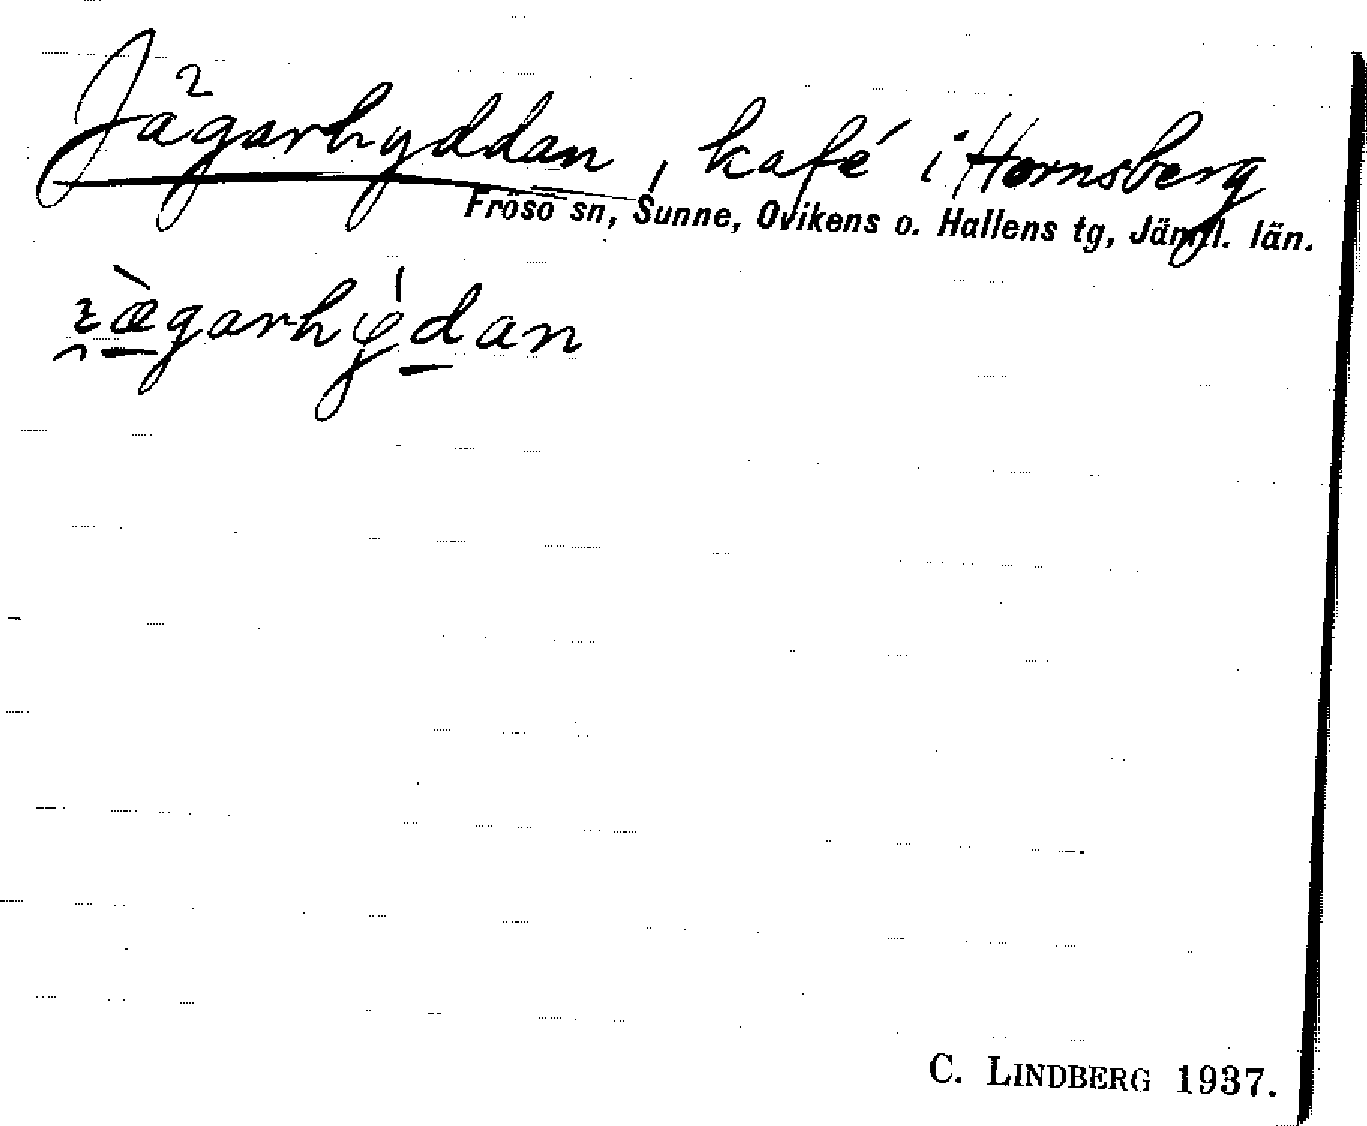 Jägarhyddan, kafé i Hornsberg
Frösö sn, Sunne, Ovikens o. Hallens tg, Jämtl. län.
C. LINDBERG 1937.